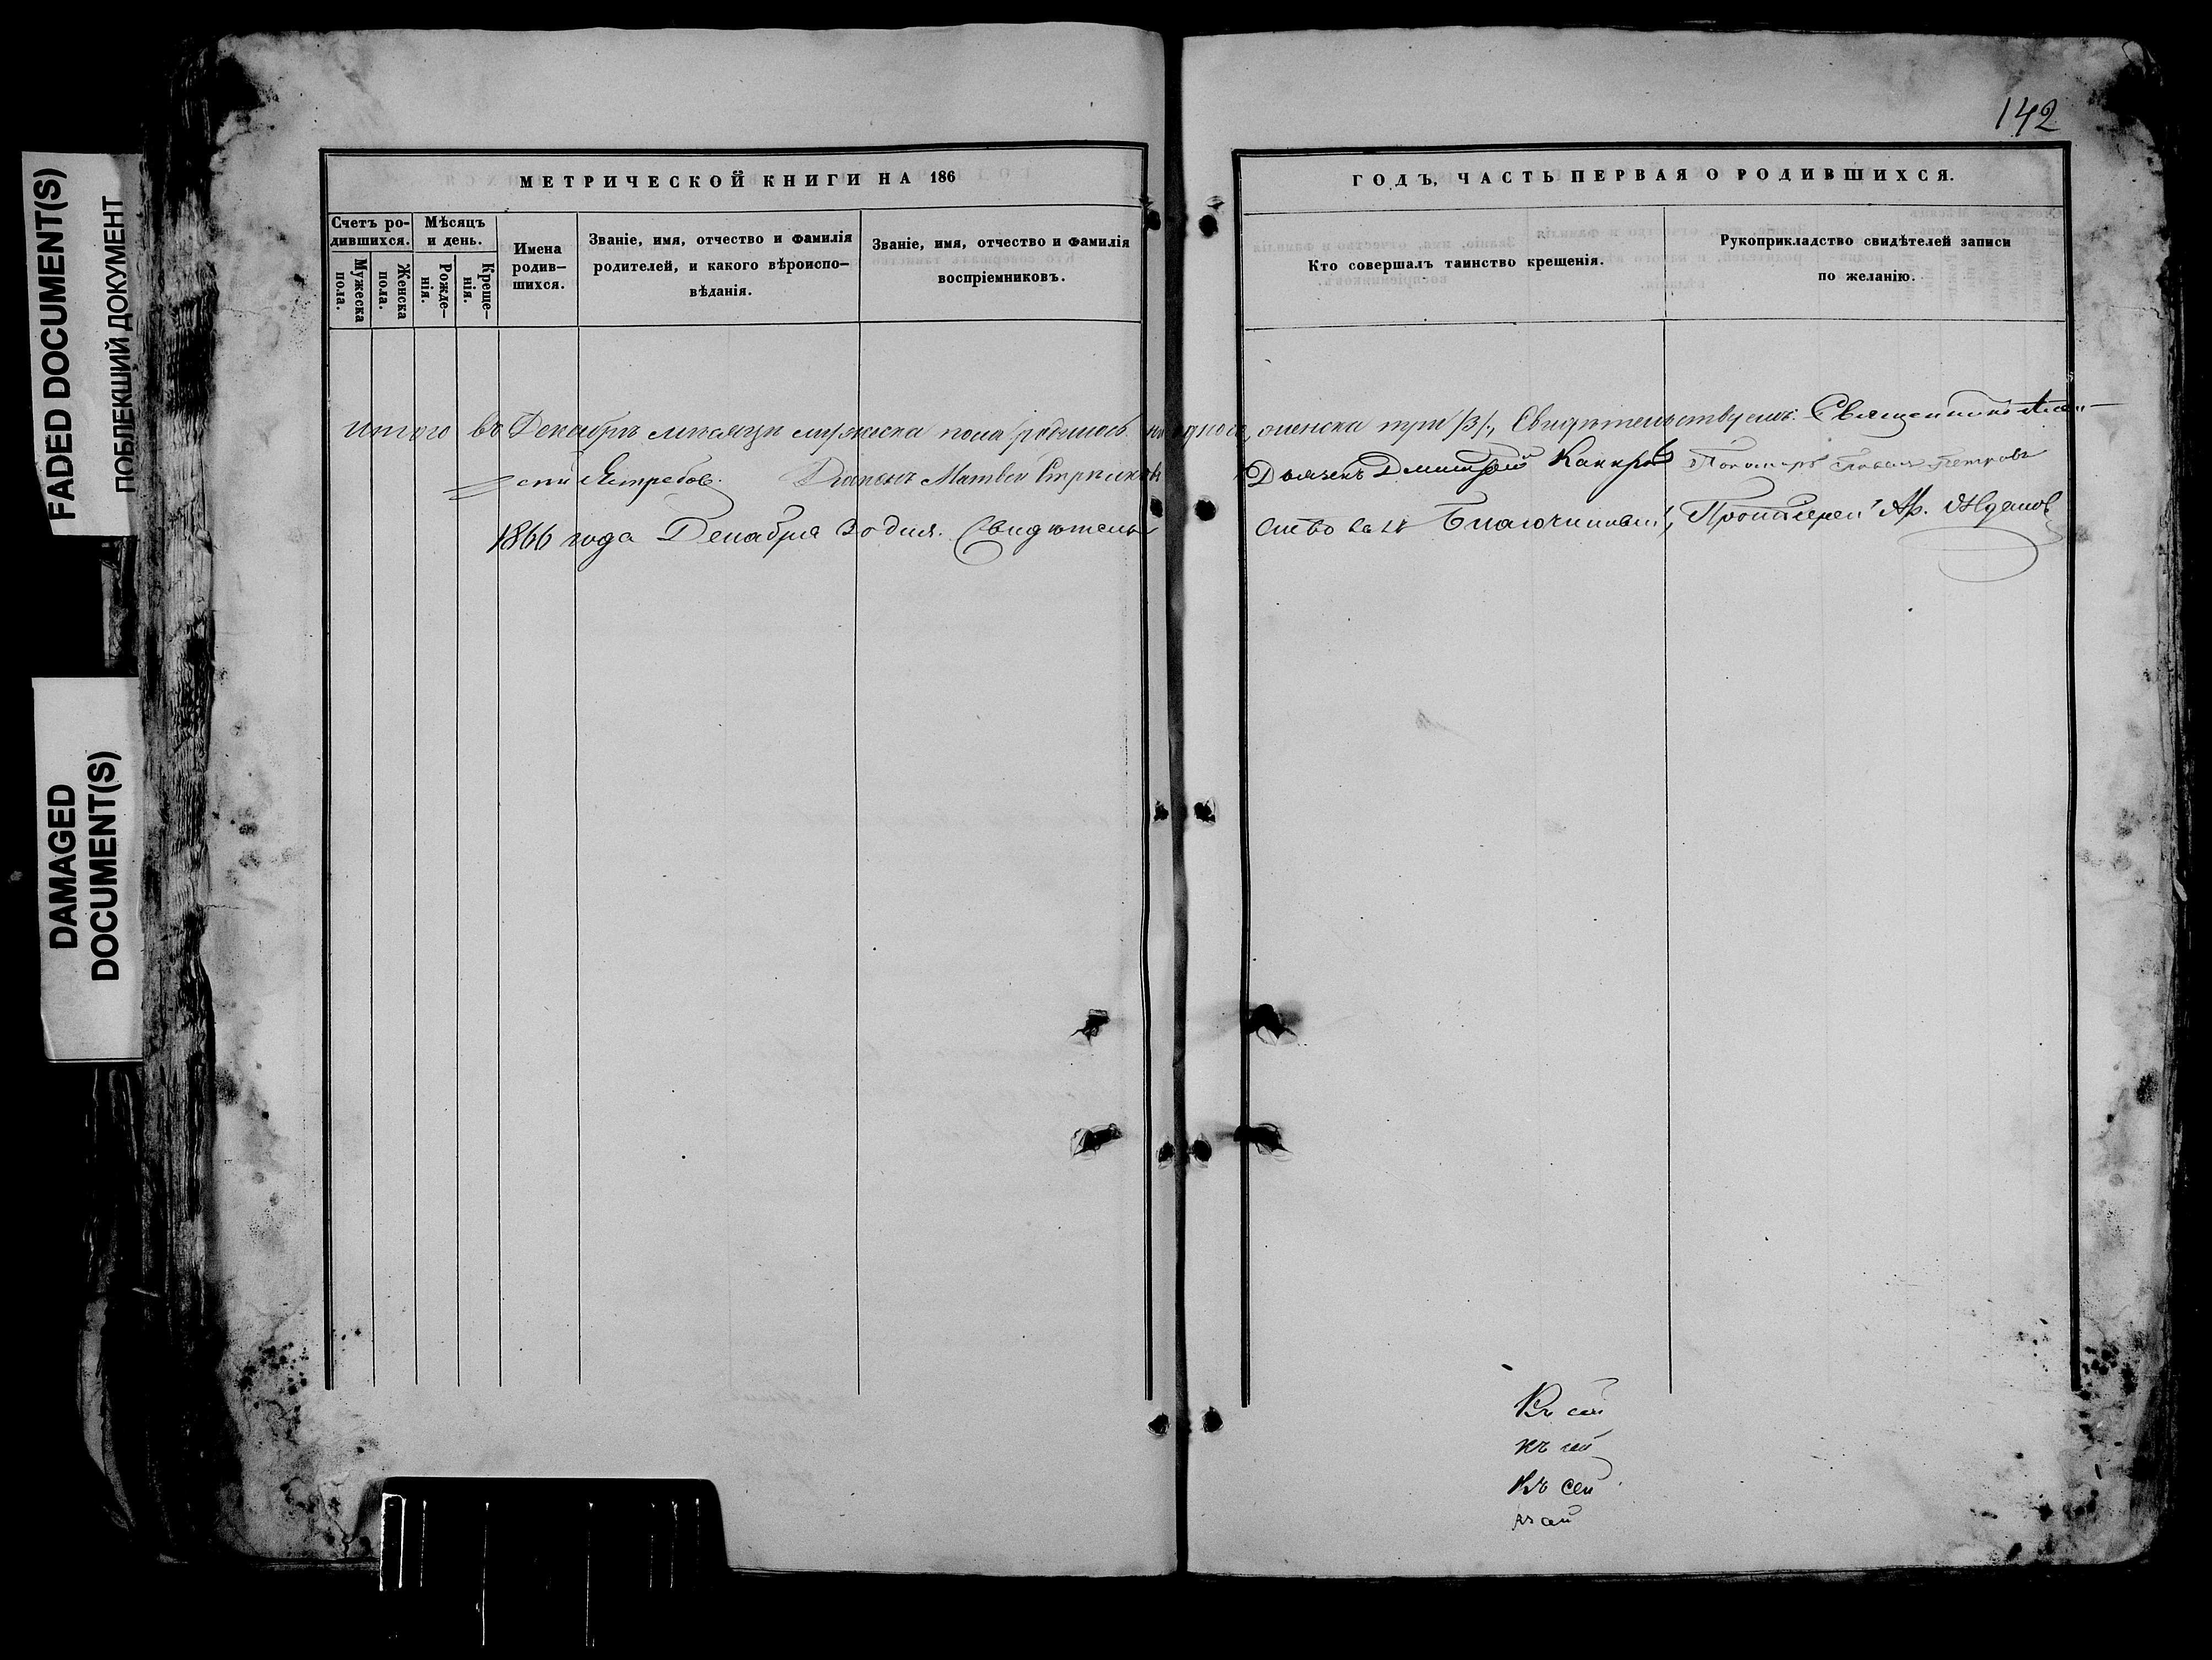 FADED DOCUMENT(S)
ПОБЛЕКШИЙ ДОКУМЕНТ
DAMAGED
DOCUMENT(S)
142
МЕТРИЧЕСКОЙ КНИГИ НА 186
ГОДЪ, ЧАСТЬ ПЕРВАЯ О РОДИВШИХСЯ.
Счетъ ро-
дившихся.
Мужеска
пола.
Женска
пола.
Мѣсяцъ
и день.
Рожде-
нія.
Креще-
нія.
Имена
родив-
шихся.
Званіе, имя, отчество и фамилія
родителей, и какого вѣроиспо-
вѣданія.
Званіе, имя, отчество и фамилія
воспріемниковъ.
Кто совершалъ таинство крещенія.
Рукоприкладство свидѣтелей записи
по желанію.
Итого въ Декабрѣ мѣсяцѣ мужеска пола родилось женска три /3/., Свидѣтельствуемъ: Священникъ
Ястребов. Диаконъ Матвей Дьячекъ Дмитрий Пономарь Павелъ Петровъ
1866 года Декабря 30 дня. Свидѣтельствовалъ Благочинный, Протоіерей
Къ сей
къ сей
Къ сей
къ сей